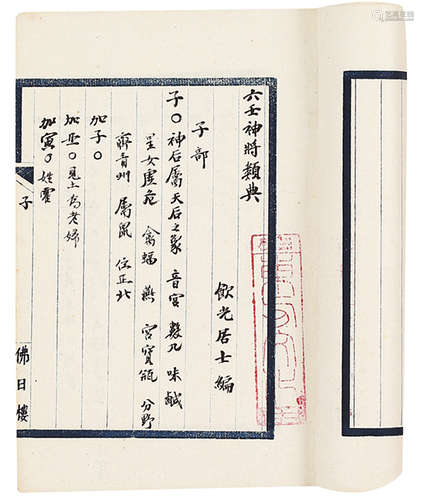 六壬神將類典
飲光居士編
子部
子〇神后屬天后之象 音宮 數九 味鹹
星女虛危 禽蝠燕 宮寶瓶 分野
齊青州 屬鼠 位正北
加子〇
加丑〇見上為老婦
加寅〇姓
子
佛日樓